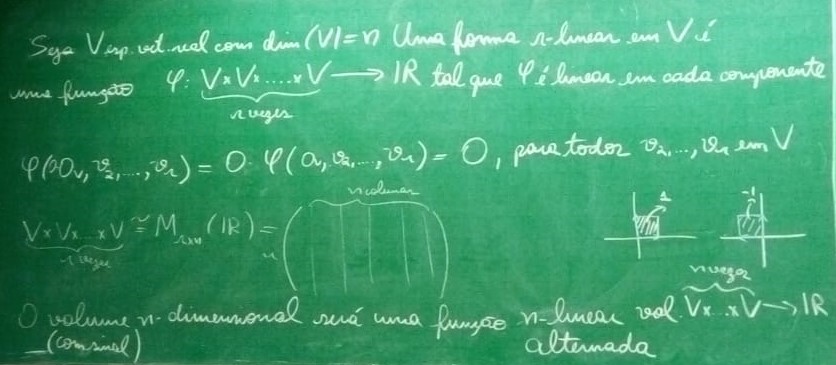 Seja V esp. vet. real com dim(V)=n Uma forma r-linear em V é
uma função φ: V×V×.....×V → IR tal que φ é linear em cada componente
r vezes
φ(0·0_V, v_2, ..., v_r) = 0·φ(0, v_2, ..., v_r) = 0, para todos v_2, ..., v_r em V
n colunas
V×V×...×V ≅ M_{r×n}(IR) =
r vezes
1 -1
n vezes
O volume n-dimensional será uma função n-linear vol: V×...×V → IR
(com sinal) alternada